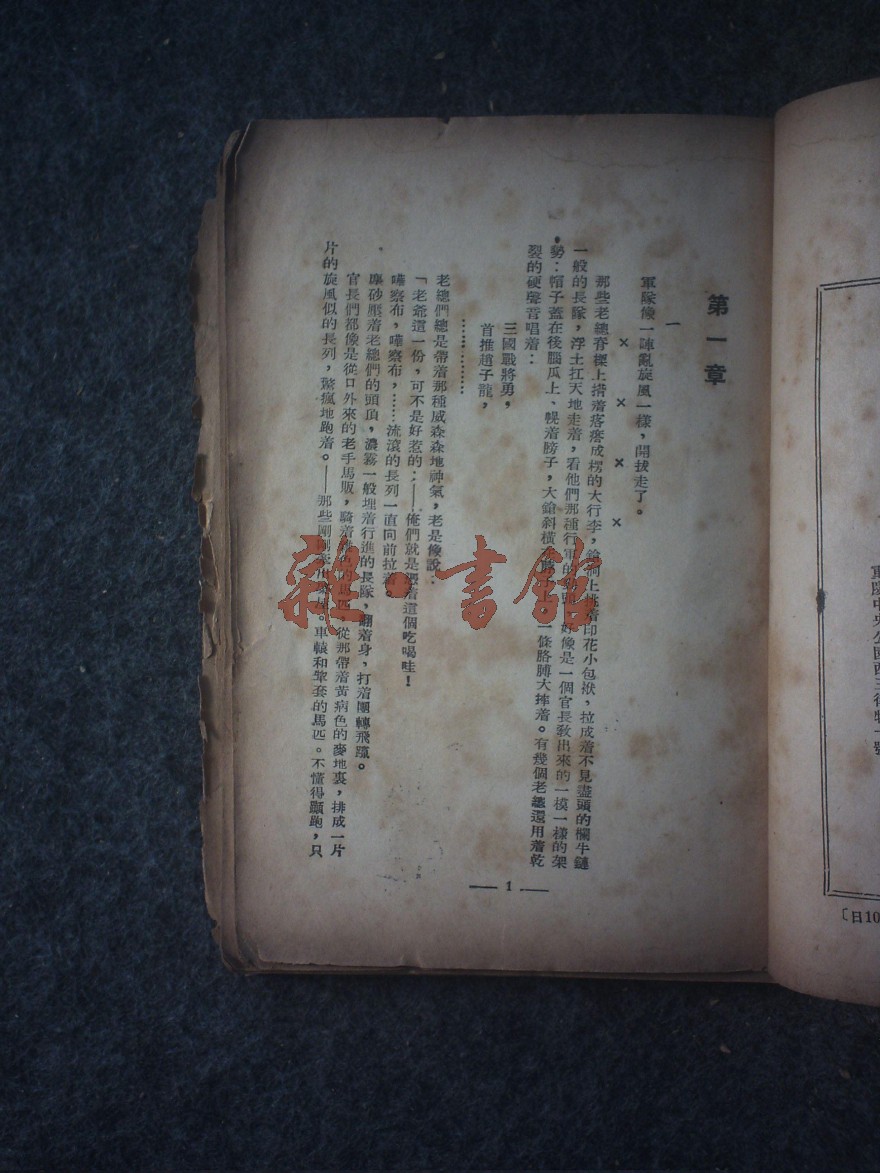 重慶中央公園西三街特一號
〔日10
第一章
一
軍隊像一陣亂旋風一樣，開拔走了。
× × × ×
那些老總脊樑上搭着疙瘩成楞的大行李，鎗洞上挑着印花小包袱，拉成着不見盡頭的欄牛鏈
一般的長隊，浮土扛天地走着，看他們那種行軍的 好像是一個官長敎出來的一摸一樣的架
勢：帽子蓋在後腦瓜上、幌着膀子，大鎗斜橫 一條胳膊大摔着。有幾個老總還用着乾
裂的硬聲音唱着：
三國戰將勇，
首推趙子龍，
……………
老總們總是帶着那種威森森地神氣，老是像說：
「老爺這一份，可不是好惹的：——俺們就是憑着這個吃喝哇！
嚓察布，嚓察布，……流滾的長列一直向前拉着。
塵砂壓着老總們的頭頂，濃霧一般埋着行進的長隊，翻着身，打着團轉飛躥。
官長們都像是從口外來的老手馬販，騎着 色的馬匹，從那帶着黃病色的麥地裏，排成一片
片的旋風似的長列，驚瘋地跑着。——那些剛剛 。車轅和犂套的馬匹。不懂得顚跑，只
— 1 —
雜·書館